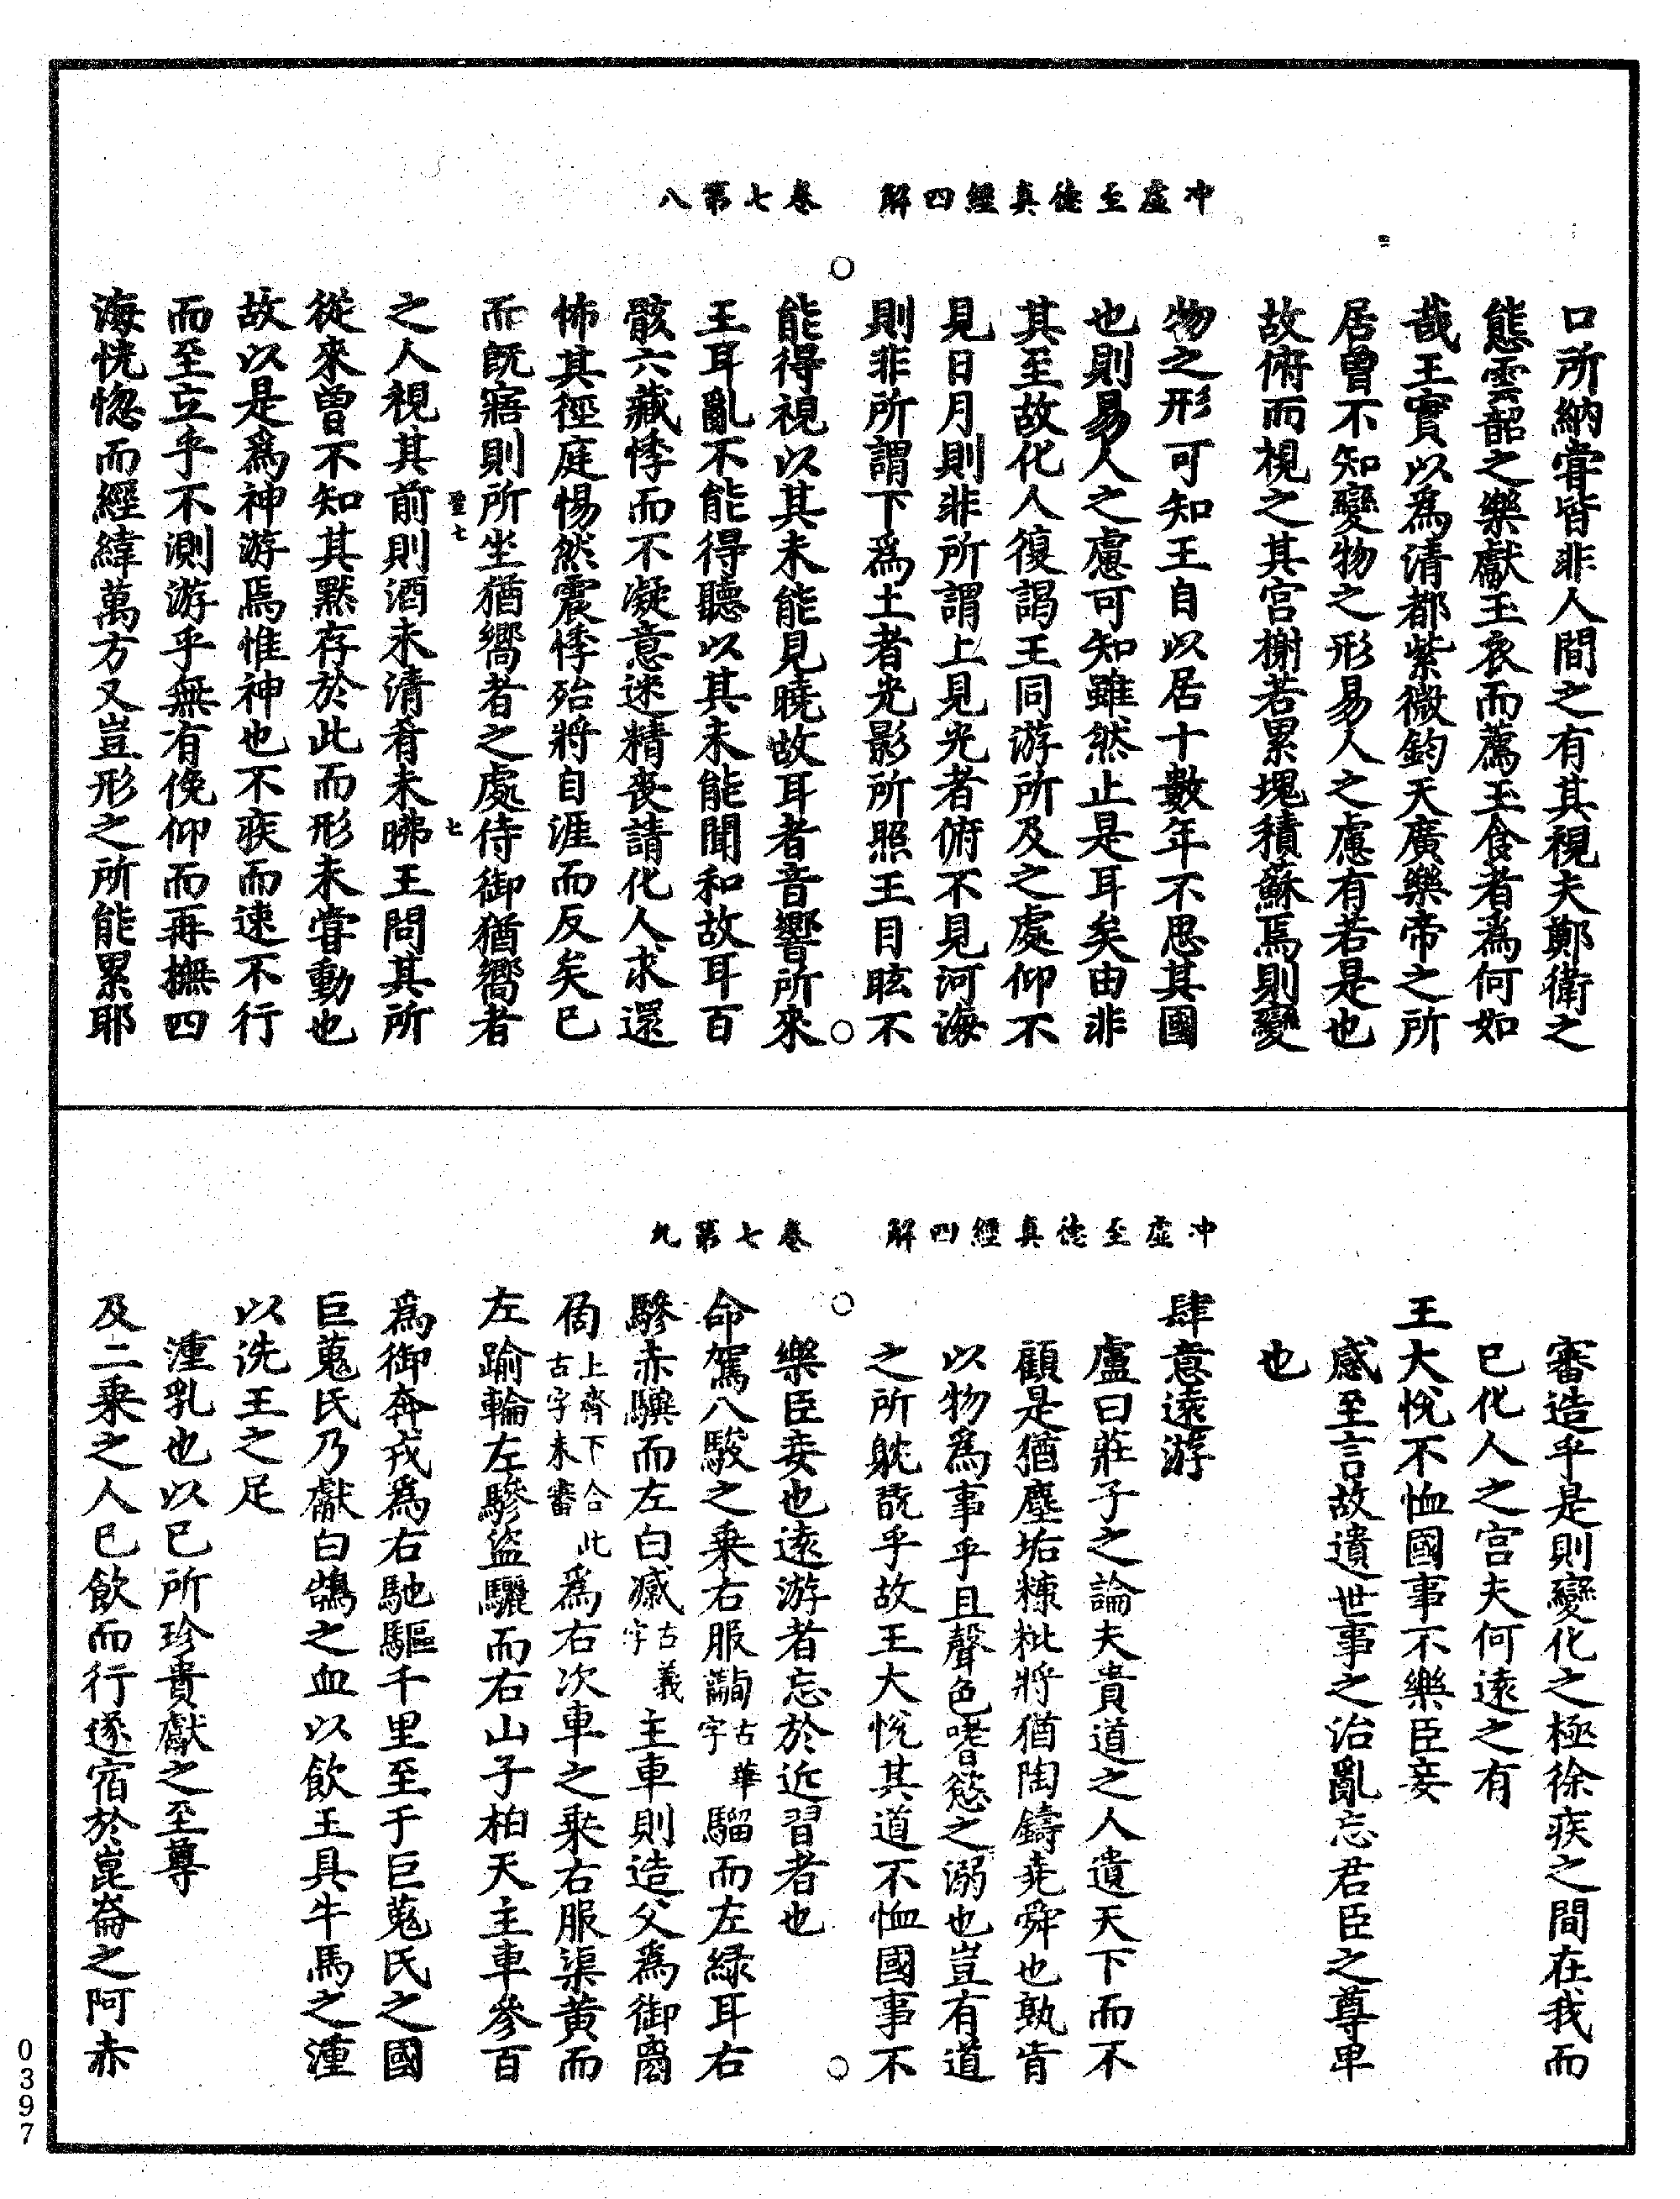 冲虛至德真經四解　卷七第八
口所納嘗皆非人間之有其視夫鄭衛之
態雲韶之樂獻玉衣而薦玉食者為何如
哉王實以為清都紫微鈞天廣樂帝之所
居曾不知變物之形易人之慮有若是也
故俯而視之其宮榭若累塊積蘇焉則變
物之形可知王自以居十數年不思其國
也則易人之慮可知雖然止是耳矣由非
其至故化人復謁王同游所及之處仰不
見日月則非所謂上見光者俯不見河海
則非所謂下為土者光影所照王目眩不
能得視以其未能見曉故耳者音響所來
王耳亂不能得聽以其未能聞和故耳百
骸六藏悸而不凝意迷精喪請化人求還
怖其徑庭惕然震悸殆將自涯而反矣已
而既寤則所坐猶嚮者之處侍御猶嚮者
聖七　七
之人視其前則酒未清肴未昲王問其所
從來曾不知其默存於此而形未嘗動也
故以是為神游焉惟神也不疾而速不行
而至立乎不測游乎無有俛仰而再撫四
海恍惚而經緯萬方又豈形之所能累耶
冲虛至德真經四解　卷七第九
審造乎是則變化之極徐疾之間在我而
已化人之宮夫何遠之有
王大悅不恤國事不樂臣妾
感至言故遺世事之治亂忘君臣之尊卑
也
肆意遠游
盧曰莊子之論夫貴道之人遺天下而不
顧是猶塵垢糠粃將猶陶鑄堯舜也孰肯
以物為事乎且聲色嗜慾之溺也豈有道
之所躭翫乎故王大悅其道不恤國事不
樂臣妾也遠游者忘於近習者也
命駕八駿之乘右服𦽊古華字騮而左綠耳右
驂赤驥而左白𣚘古義字主車則造父為御𦒎
𠕀上齊下合此古字未審為右次車之乘右服渠黃而
左踰輪左驂盜驪而右山子柏夭主車參百
為御奔戎為右馳驅千里至于巨蒐氏之國
巨蒐氏乃獻白鵠之血以飲王具牛馬之湩
以洗王之足
湩乳也以已所珍貴獻之至尊
及二乘之人已飲而行遂宿於崑崙之阿赤
0397